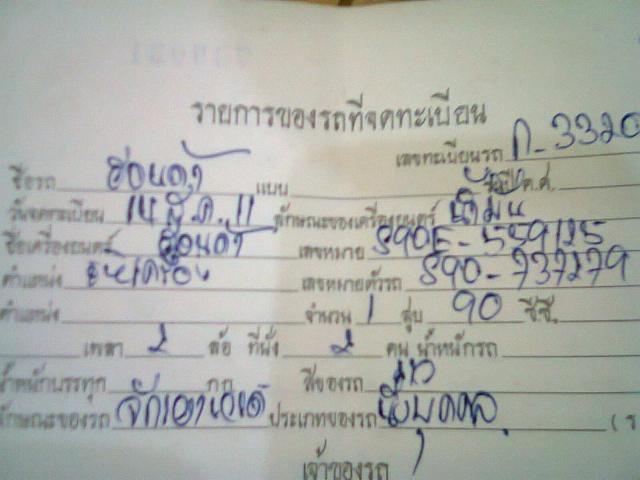 รายการของรถที่จดทะเบียน
เลขทะเบียนรถ ก-3320
ชื่อรถ ฮอนด้า แบบ ค.ศ.
วันจดทะเบียน 14 มี.ค. 11 ลักษณะของเครื่องยนต์ น้ำมัน
ชื่อเครื่องยนต์ ฮอนด้า เลขหมาย S90E-559125
ตำแหน่ง เครื่อง เลขหมายตัวรถ S90-737279
ตำแหน่ง จำนวน 1 สูบ 90 ซีซี.
เพลา 2 ล้อ ที่นั่ง 2 คน น้ำหนักรถ
น้ำหนักบรรทุก กก สีของรถ
ลักษณะของรถ จักรยานยนต์ ประเภทของรถ นั่งบุคคล (ร
เจ้าของรถ